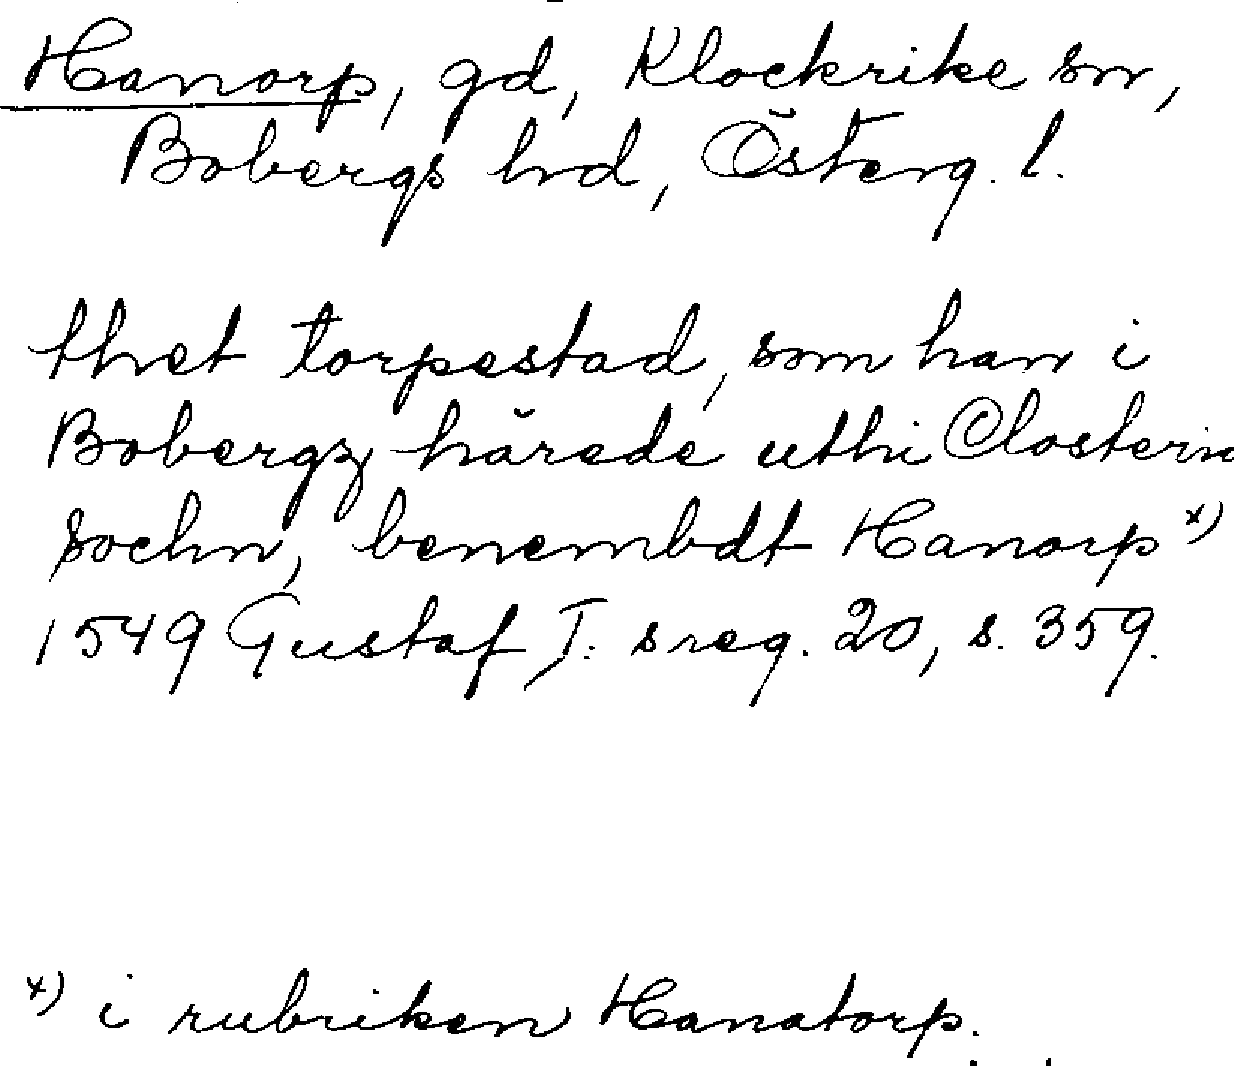 Hanorp, gd, Klockrike sn,
Bobergs hrd, Österg. l.
thet torpestad, som han i
Bobergz härede uthi Closterin
sochn, benembdt Hanorp x)
1549 Gustaf I: s reg. 20, s. 359.
x) i rubriken Hanatorp.